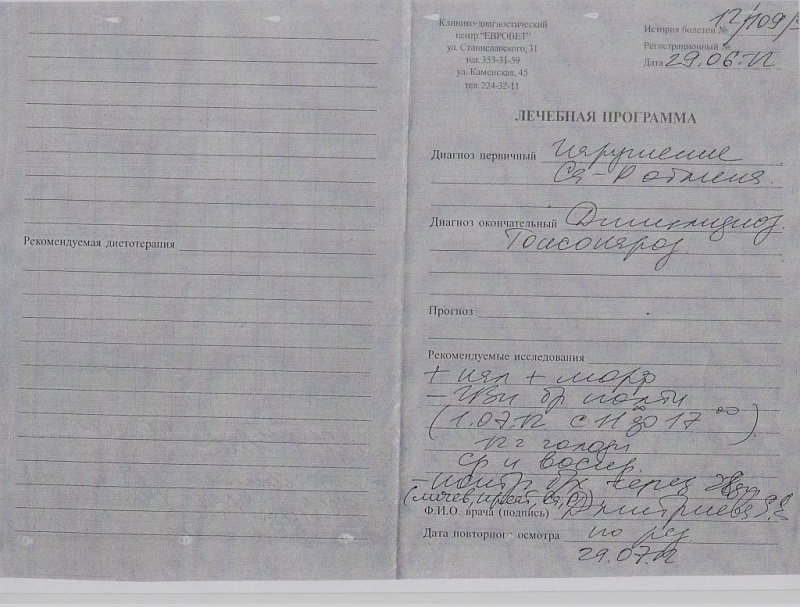 Рекомендуемая диетотерапия
Клинико-диагностический
центр "ЕВРОВЕТ"
ул. Станиславского, 31
тел. 353-31-59
ул. Каменская, 45
тел. 224-32-11
История болезни № 12/109/
Регистрационный №
Дата 29.06.12
ЛЕЧЕБНАЯ ПРОГРАММА
Диагноз первичный Нарушение
Ca-P обмена.
Диагноз окончательный
Токсокароз.
Прогноз
Рекомендуемые исследования
+ кал + морф
- УЗИ бр полти
(1.07.12 с 11 до 17 00)
12 ч голодн
ср и воскр.
через
Ф.И.О. врача (подпись) Дмитриева
Дата повторного осмотра по рез
29.07.12